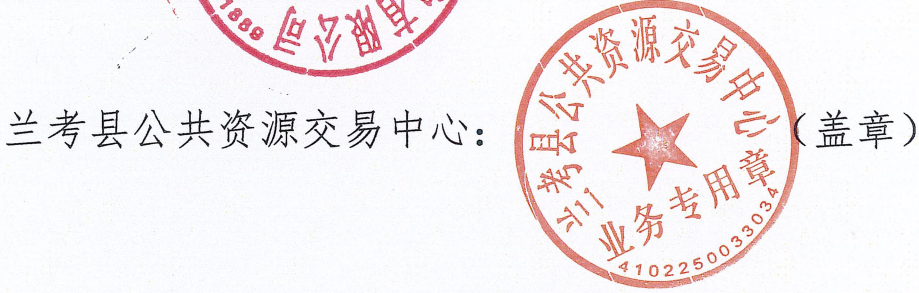 有限公司
1888
兰考县公共资源交易中心：（盖章）
兰考县公共资源交易中心
业务专用章
4102250033034